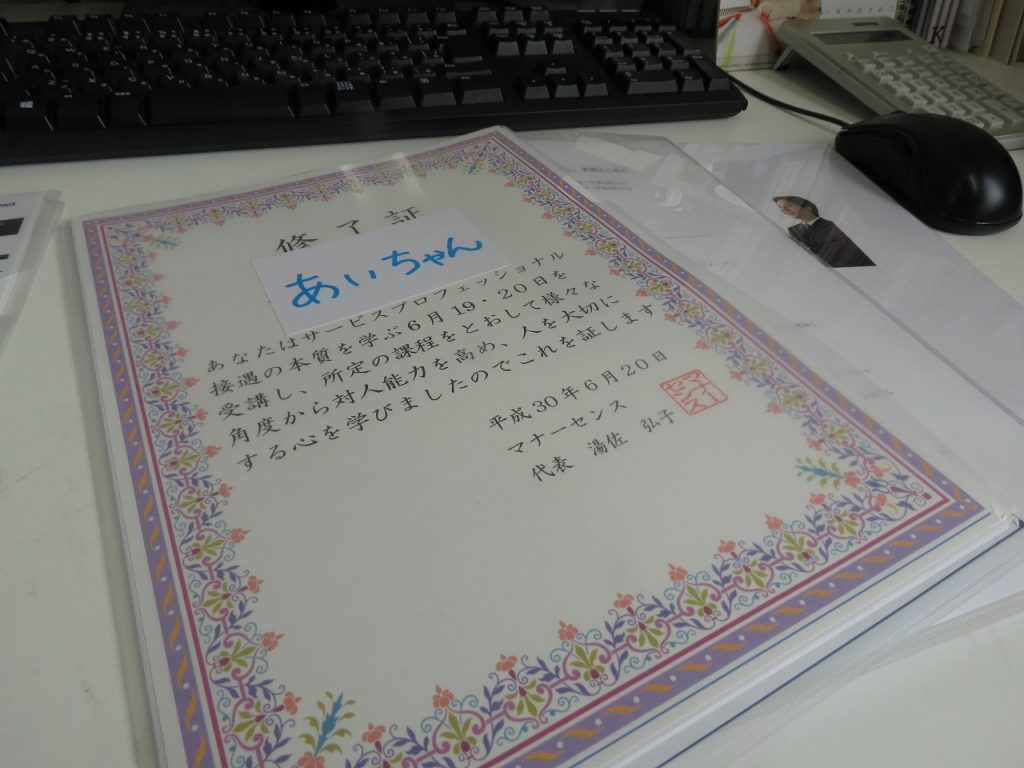 修了証
あいちゃん
あなたはサービスプロフェッショナル
接遇の本質を学ぶ6月19・20日を
受講し、所定の課程をとおして様々な
角度から対人能力を高め、人を大切に
する心を学びましたのでこれを証します
平成30年6月20日
マナーセンス
代表 湯佐 弘子
マナーセンス
K